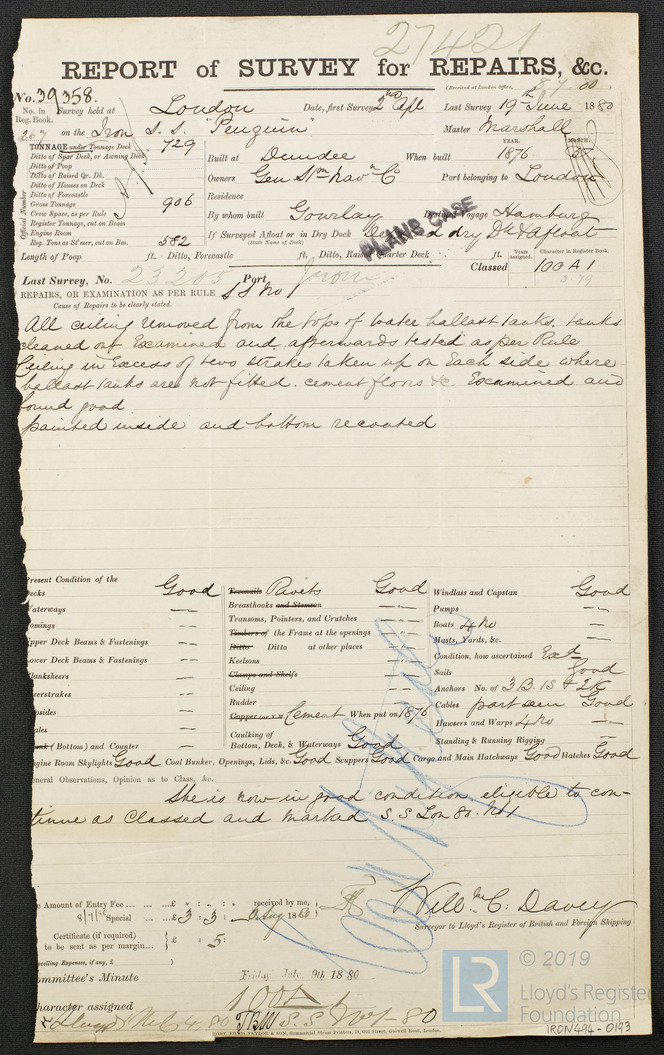 27421
REPORT of SURVEY for REPAIRS, &c.
(Received at London Office, 8 7 80
No. 39358.
No. in Survey held at London Date, first Survey 2nd Apl Last Survey 19th June 1880
Reg. Book.
267 on the Iron S. S. "Penguin" Master Marshall
TONNAGE under Tonnage Deck 729
Ditto of Spar Deck, or Awning Deck
Ditto of Poop
Ditto of Raised Qr. Dk.
Ditto of Houses on Deck
Ditto of Forecastle
Gross Tonnage 906
Crew Space, as per Rule
Register Tonnage, cut on Beam
Engine Room
Reg. Tons as St'mer, cut on Bm. 582
Official Number
YEAR. MONTH.
Built at Dundee When built 1876
Owners Gen Stm Navn Co Port belonging to London
Residence
By whom built Gourlay Destined Voyage Hamburg
If Surveyed Afloat or in Dry Dock dry Dk & afloat
(State Name of Dock)
PLANS CASE
Length of Poop ft. Ditto, Forecastle ft. Ditto, Raised Quarter Deck ft.
Years assigned. Character in Register Book.
Classed 100 A 1
Last Survey, No. 23203 Port
REPAIRS, OR EXAMINATION AS PER RULE S S No 1
Cause of Repairs to be clearly stated.
All ceiling removed from the tops of water ballast tanks. tanks
cleaned out Examined and afterwards tested as per Rule
Ceiling in Excess of two strakes taken up on Each side where
ballast tanks are not fitted. cement floors &c Examined and
found good
painted inside and bottom recoated
Present Condition of the
Decks Good
Waterways —
Comings —
Upper Deck Beams & Fastenings —
Lower Deck Beams & Fastenings —
Planksheers —
Sheerstrakes —
Topsides —
Wales —
(Bottom) and Counter —
Treenails Rivets Good
Breasthooks and Stemson
Transoms, Pointers, and Crutches
Timbers of the Frame at the openings
Ditto Ditto at other places
Keelsons
Clamps and Shelfs
Ceiling
Rudder
Copper (or Y.M) Cement When put on 1876
Caulking of
Bottom, Deck, & Waterways Good
Windlass and Capstan Good
Pumps
Boats 4 No
Masts, Yards, &c.
Condition, how ascertained Exd
Sails Good
Anchors No. of 3 B. 1S & 2K
Cables part seen Good
Hawsers and Warps 4 No
Standing & Running Rigging
Engine Room Skylights Good Coal Bunker, Openings, Lids, &c. Good Scuppers Good Cargo and Main Hatchways Good Hatches Good
General Observations, Opinion as to Class, &c.
She is now in good condition eligible to con-
tinue as Classed and marked S. S Lon 80. No 1
Amount of Entry Fee ... £ " : " : " received by me,
8/7/80 Special ... £ 3 : 3 : — Aug 1880
Certificate (if required)
to be sent as per margin... £ : 5 :
Travelling Expenses, if any, £
Willm C. Davey
Surveyor to Lloyd's Register of British and Foreign Shipping
Committee's Minute Friday July 9th 1880
Character assigned 100A1
S. S. No 1 - 80
© 2019
LR
Lloyd's Register
Foundation
IRON494-0193